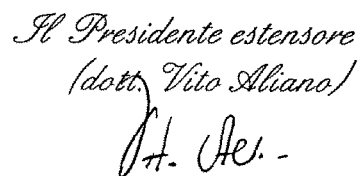 Il Presidente estensore
(dott. Vito Aliano)